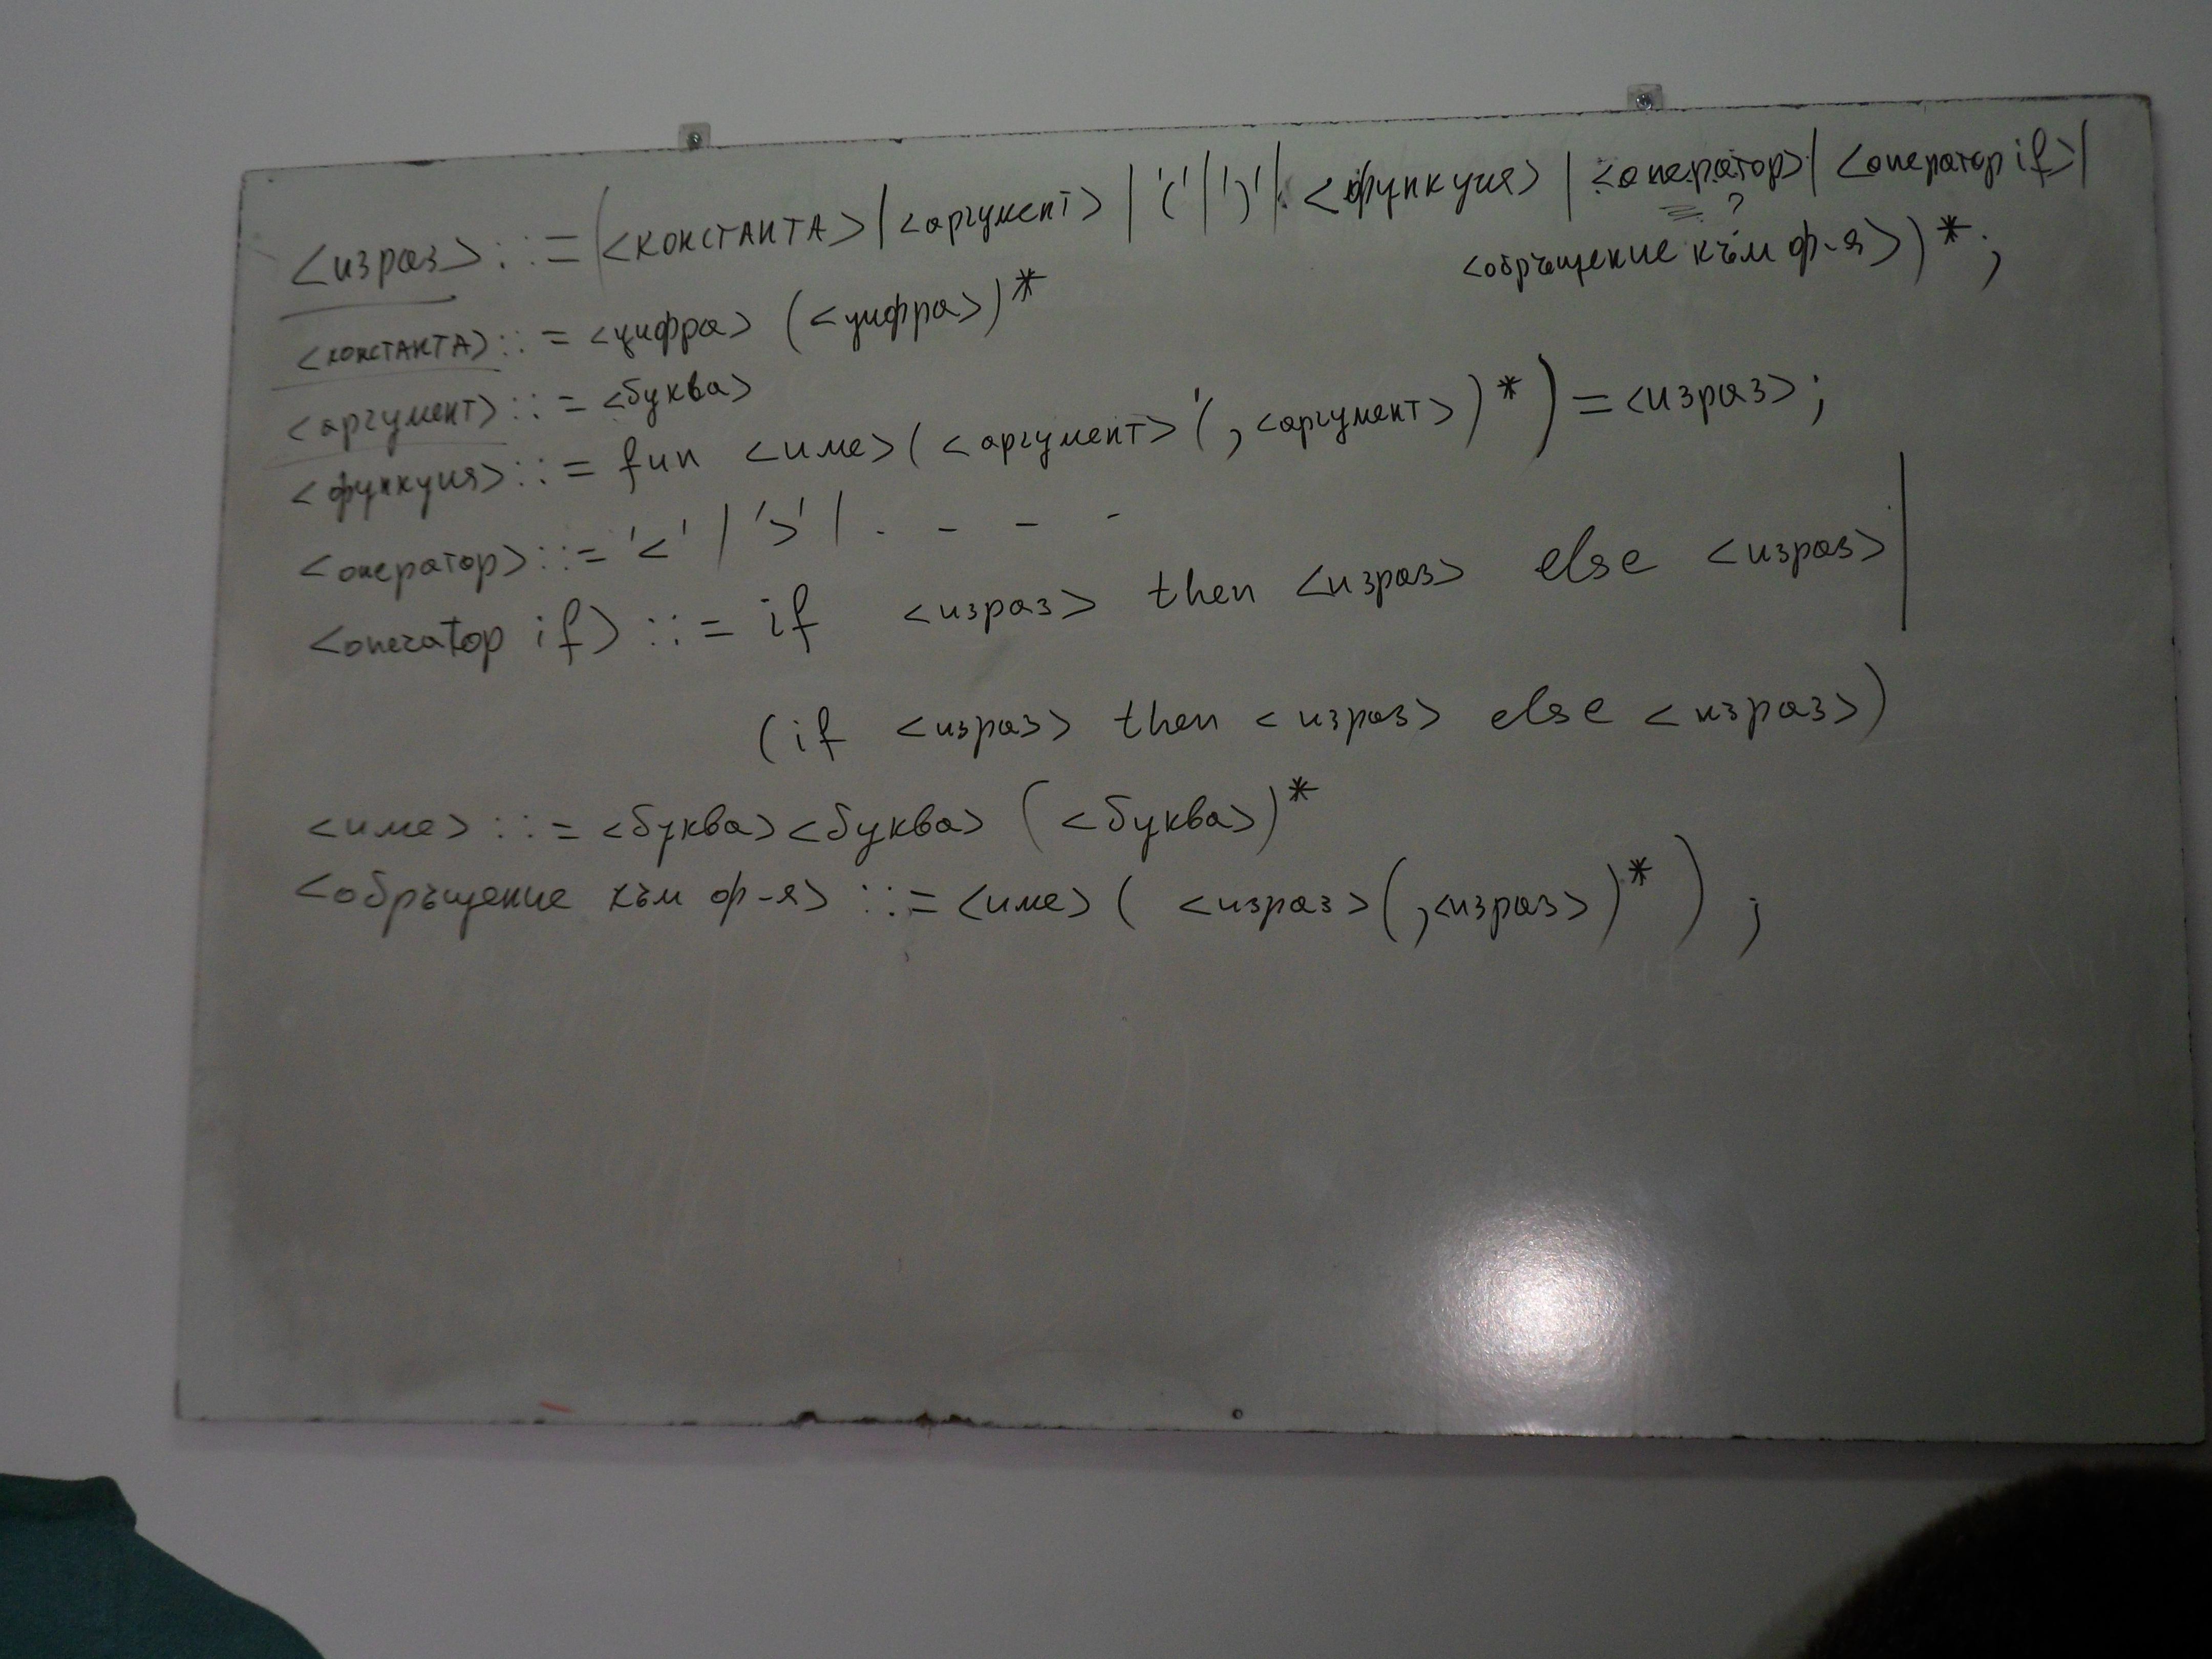 <израз>::=(<константа>|<аргумент>|'('|')'|<функция>|<оператор>|<оператор if>|
?
<обръщение към ф-я>)*;
<константа>::=<цифра>(<цифра>)*
<аргумент>::=<буква>
<функция>::=fun <име>(<аргумент>'(,<аргумент>)'*)=<израз>;
<оператор>::='<'|'>'|. - - -
<оператор if>::=if <израз> then <израз> else <израз>|
(if <израз> then <израз> else <израз>)
<име>::=<буква><буква>(<буква>)*
<обръщение към ф-я>::=<име>(<израз>(,<израз>)*);